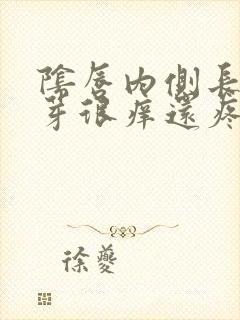 陰唇內側長
芽很痒還疼
徐夔